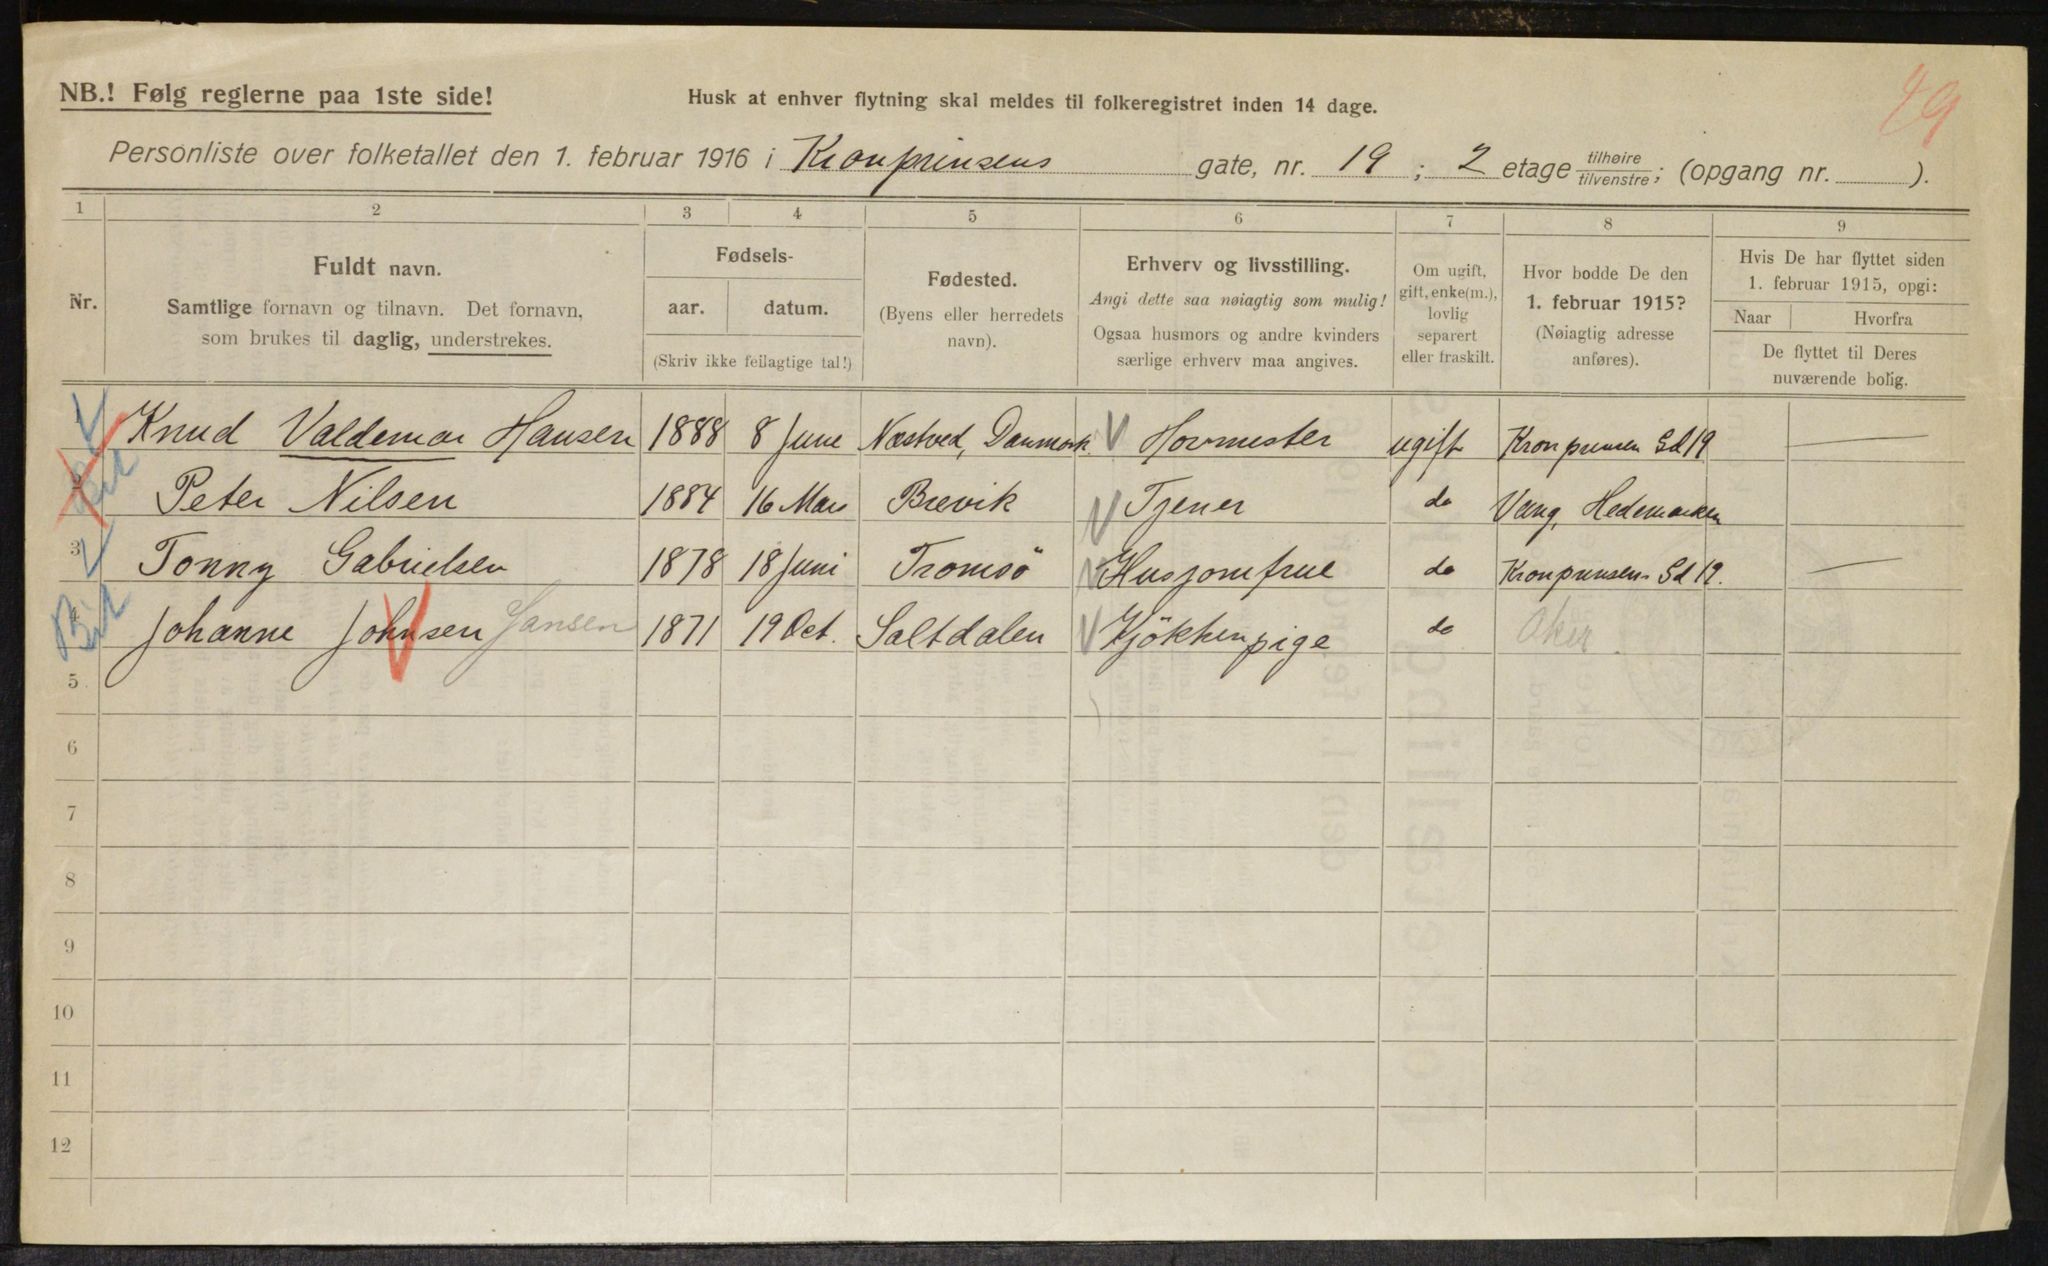 NB.! Følg reglerne paa 1ste side!
Husk at enhver flytning skal meldes til folkeregistret inden 14 dage.
49
Personliste over folketallet den 1. februar 1916 i Kronprinsens gate, nr. 19 ; 2 etage tilhøire/tilvenstre; (opgang nr. ).
1 2 3 4 5 6 7 8 9
Nr.
Fuldt navn.
Samtlige fornavn og tilnavn. Det fornavn,
som brukes til daglig, understrekes.
Fødsels-
aar. datum.
(Skriv ikke feilagtige tal!)
Fødested.
(Byens eller herredets
navn).
Erhverv og livsstilling.
Angi dette saa nøiagtig som mulig!
Ogsaa husmors og andre kvinders
særlige erhverv maa angives.
Om ugift,
gift, enke(m.),
lovlig
separert
eller fraskilt.
Hvor bodde De den
1. februar 1915?
(Nøiagtig adresse
anføres).
Hvis De har flyttet siden
1. februar 1915, opgi:
Naar Hvorfra
De flyttet til Deres
nuværende bolig.
1 Knud Valdemar Hansen 1888 8 June Næstved, Danmark. Hovmester ugift Kronprinsen Gd 19
Peter Nilsen 1884 16 Mars Brevik Tjener do Vang, Hedemarken
3 Tonny Gabrielsen 1878 18 Juni Tromsö Husjomfrue do Kronprinsens Gd 19.
4 Johanne Johnsen Jansen 1871 19 Oct. Saltdalen Kjökkenpige do Aker
5
6
7
8
9
10
11
12